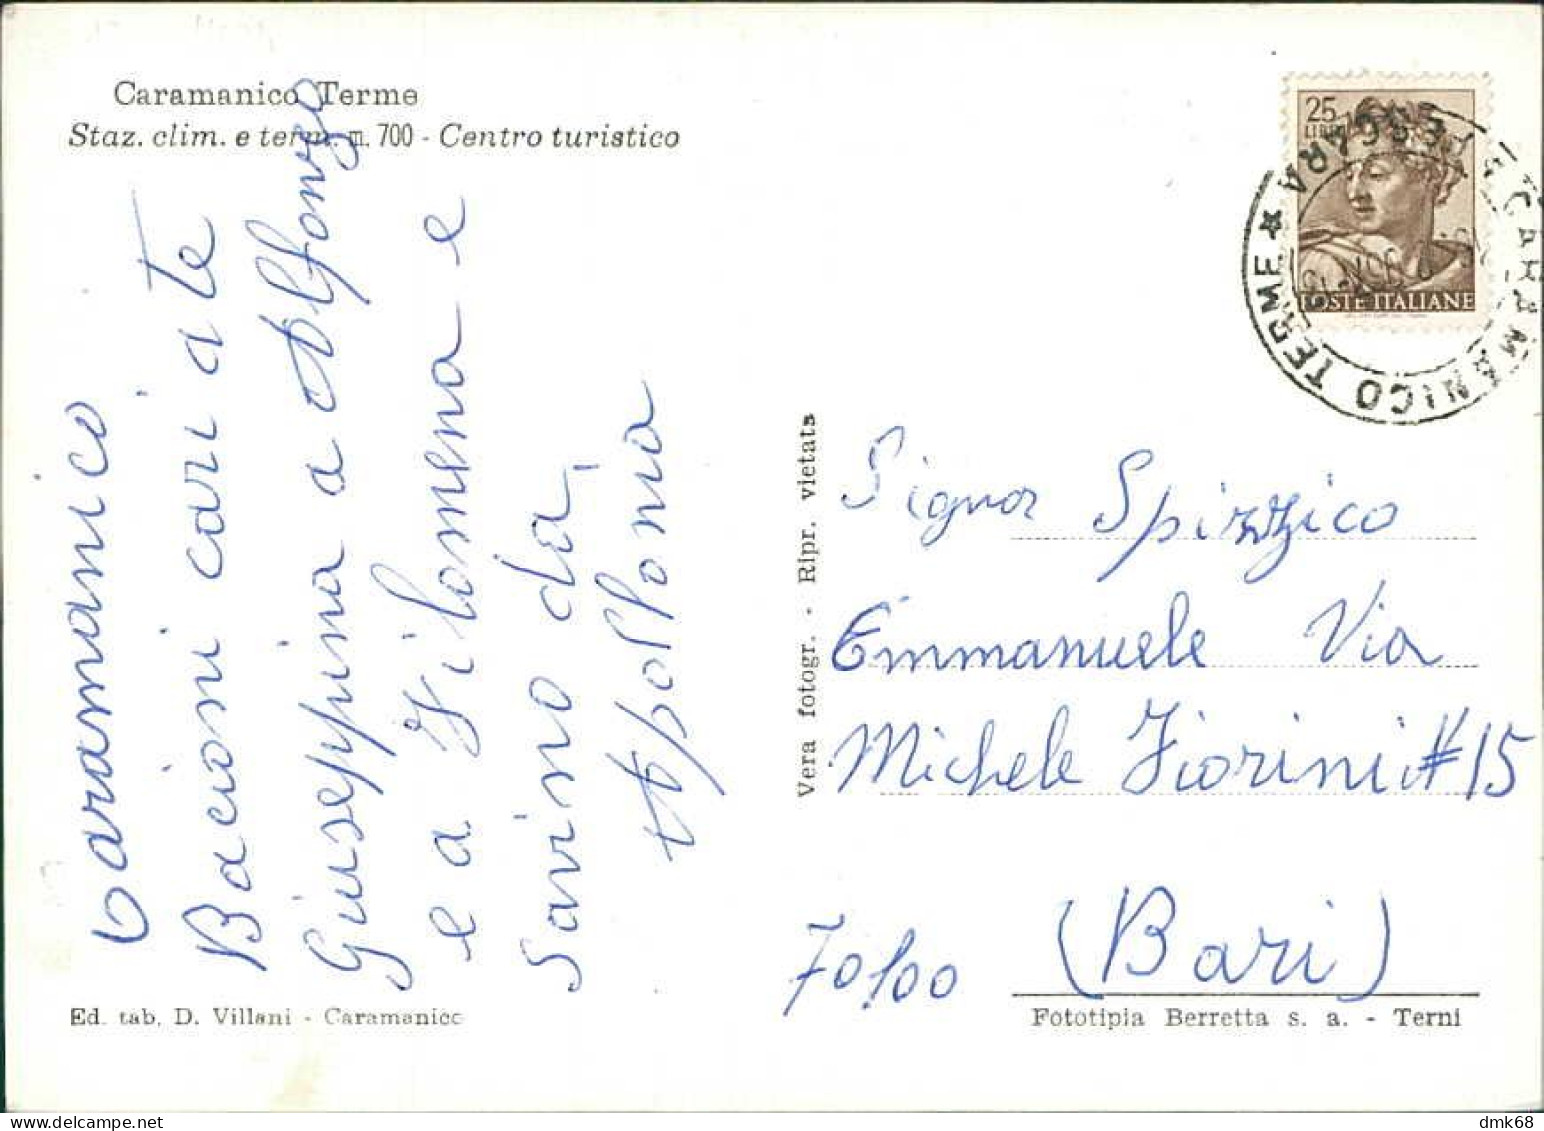 Caramanico Terme
Staz. clim. e term. m. 700 - Centro turistico
Caramanico
Bacioni cari a te
Giuseppina a Alfonzo
e a Filomena e
Savino da
Appollonia
Ed. tab. D. Villani - Caramanico
Vera fotogr. - Ripr. vietata
25
LIRE
POSTE ITALIANE
CARAMANICO TERME ★ PESCARA
Signor Spizzico
Emmanuele Via
Michele Fiorini # 15
70100 (Bari)
Fototipia Berretta s. a. - Terni
dmk68